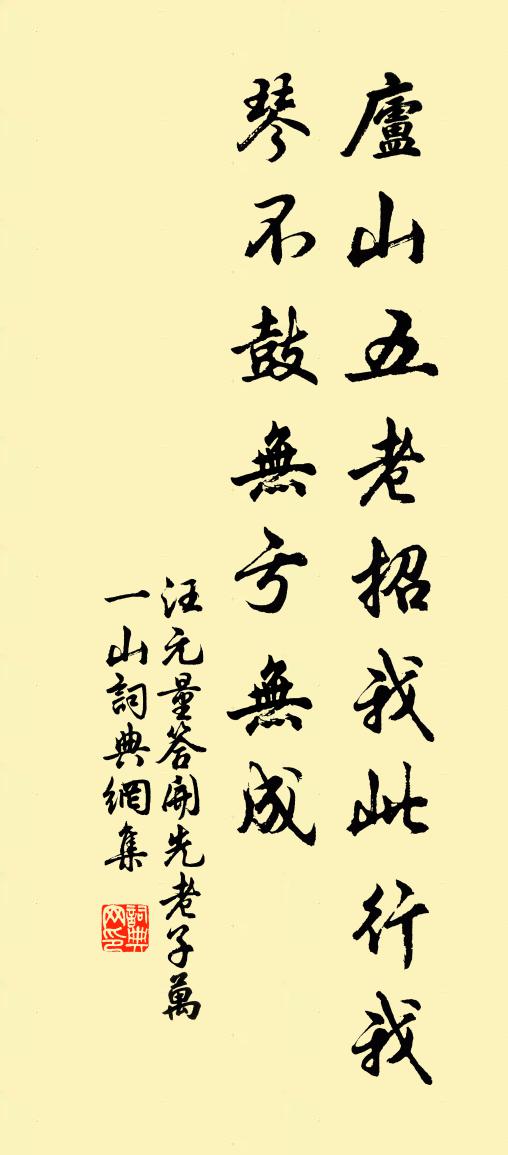 廬山五老招我此行我
琴不鼓無亏無成
汪元量答開先老子萬
一山詞典網集
詞典
网印